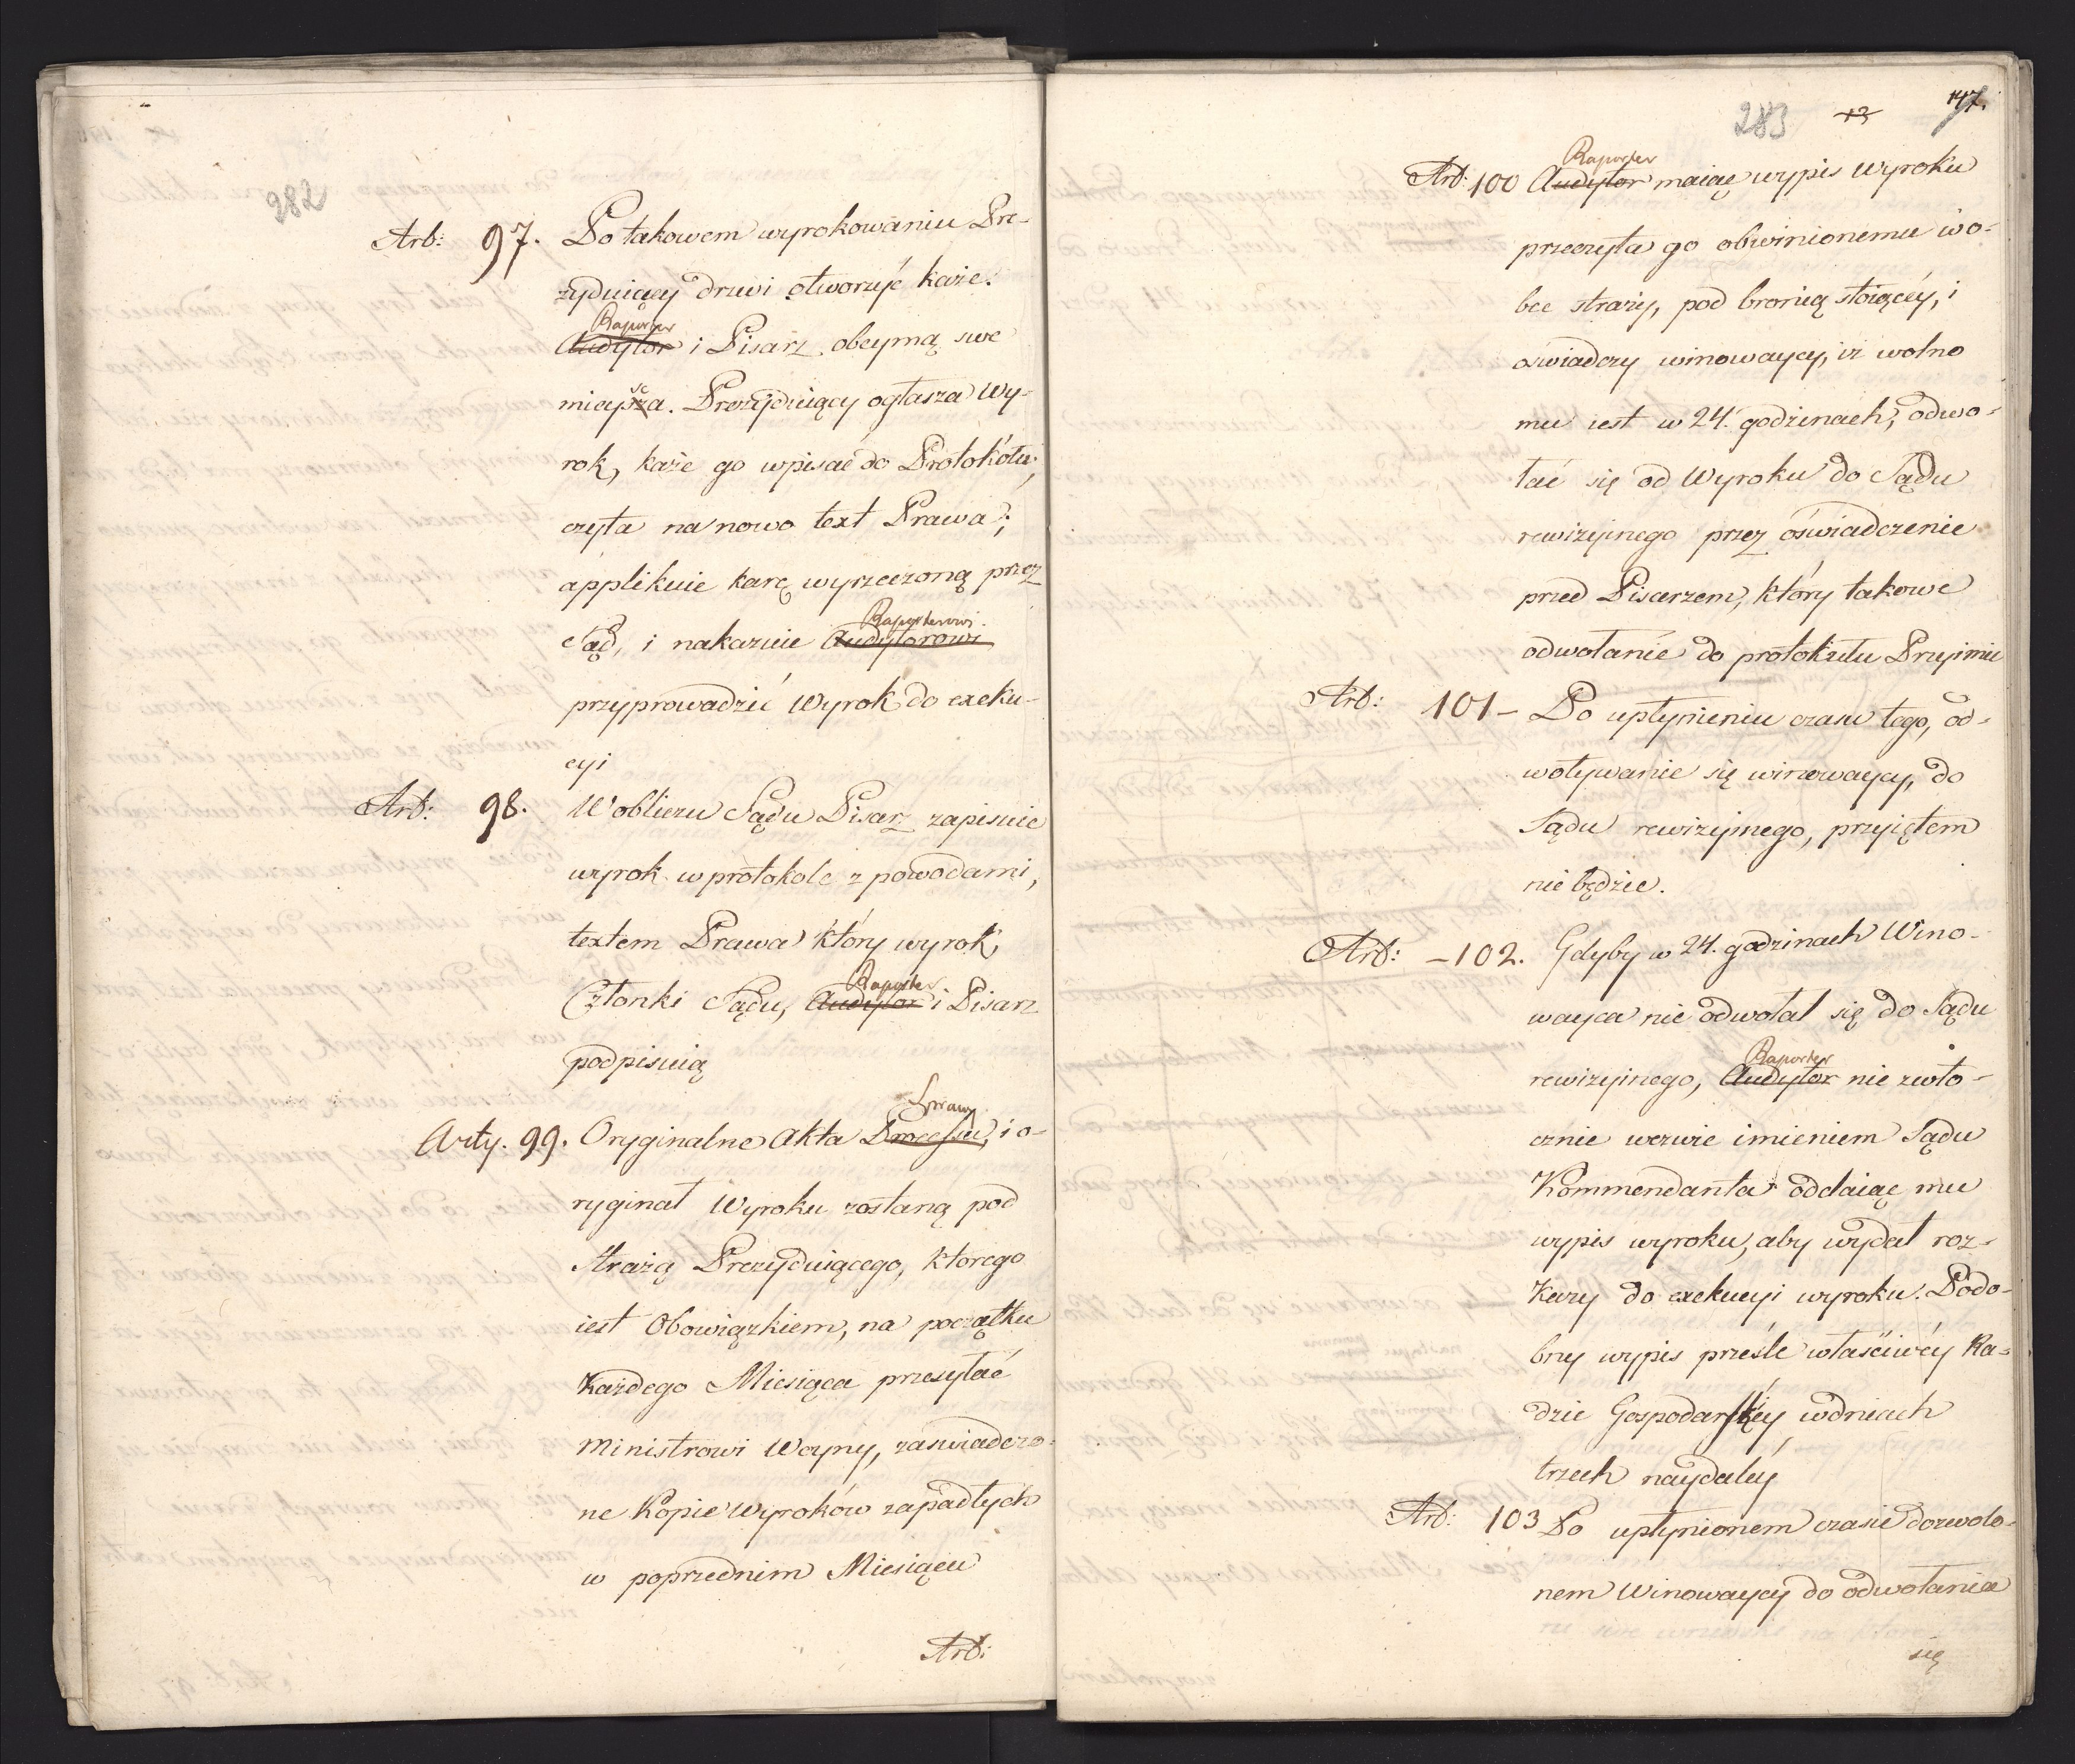 282
Art: 97. Po takowem wyrokowaniu Pre-
zyduiący drzwi otworzyć każe.
Raporter
Audytor i Pisarz obeymą swe
sc
mieysza. Prezyduiący ogłasza Wy-
rok, każe go wpisać do Protokółu,
czyta na nowo text Prawa;
applikuie karę wyrzeczoną przez
Raporterowi.
Sąd, i nakazuie Audytorowi
przyprowadzić Wyrok do exeku-
cyi
Art: 98. W obliczu Sądu Pisarz zapisuie
wyrok w protokole z powodami,
textem Prawa który wyrok,
Raporter
Członki Sądu, Audytor i Pisarz
podpisuią
Sprawy
Arty. 99. Oryginalne Akta Processu, i o-
ryginał Wyroku zostaną pod
strażą Prezyduiącego, którego
iest Obowiązkiem, na początku
Każdego Miesiąca przesyłać
Ministrowi Woyny, zaświadczo-
ne Kopie Wyroków zapadłych
w poprzednim Miesiącu
Art:
283 13 147.
Raporter
Art: 100 Audytor maiąc wypis Wyroku
przeczyta go obwinionemu wo-
bec straży, pod bronią stoiącéy, i
oświadczy winowaycy, iż wolno
mu iest w 24. godzinach, odwo-
łać się od Wyroku do Sądu
rewizyinego przez oświadczenie
przed Pisarzem, który takowe
odwołanie do protokułu Przyimie
Art: 101 – Po upłynieniu czasu tego, od-
woływanie się winowaycy, do
Sądu rewizyinego, przyiętem
nie będzie.
Art: – 102. Gdyby w 24. godzinach Wino-
wayca nie odwołał się do Sądu
Raporter
rewizyinego, Audytor nie zwło-
cznie wezwie imieniem Sądu
Kommendanta oddaiąc mu
wypis wyroku, aby wydał roz-
kazy do exekucyi wyroku. Podo-
bny wypis prześle właściwéy Ra-
dzie Gospodarskiéy w dniach
trzech naydaléy
Art: 103 Po upłynionem czasie dozwolo-
nem Winowaycy do odwołania
się